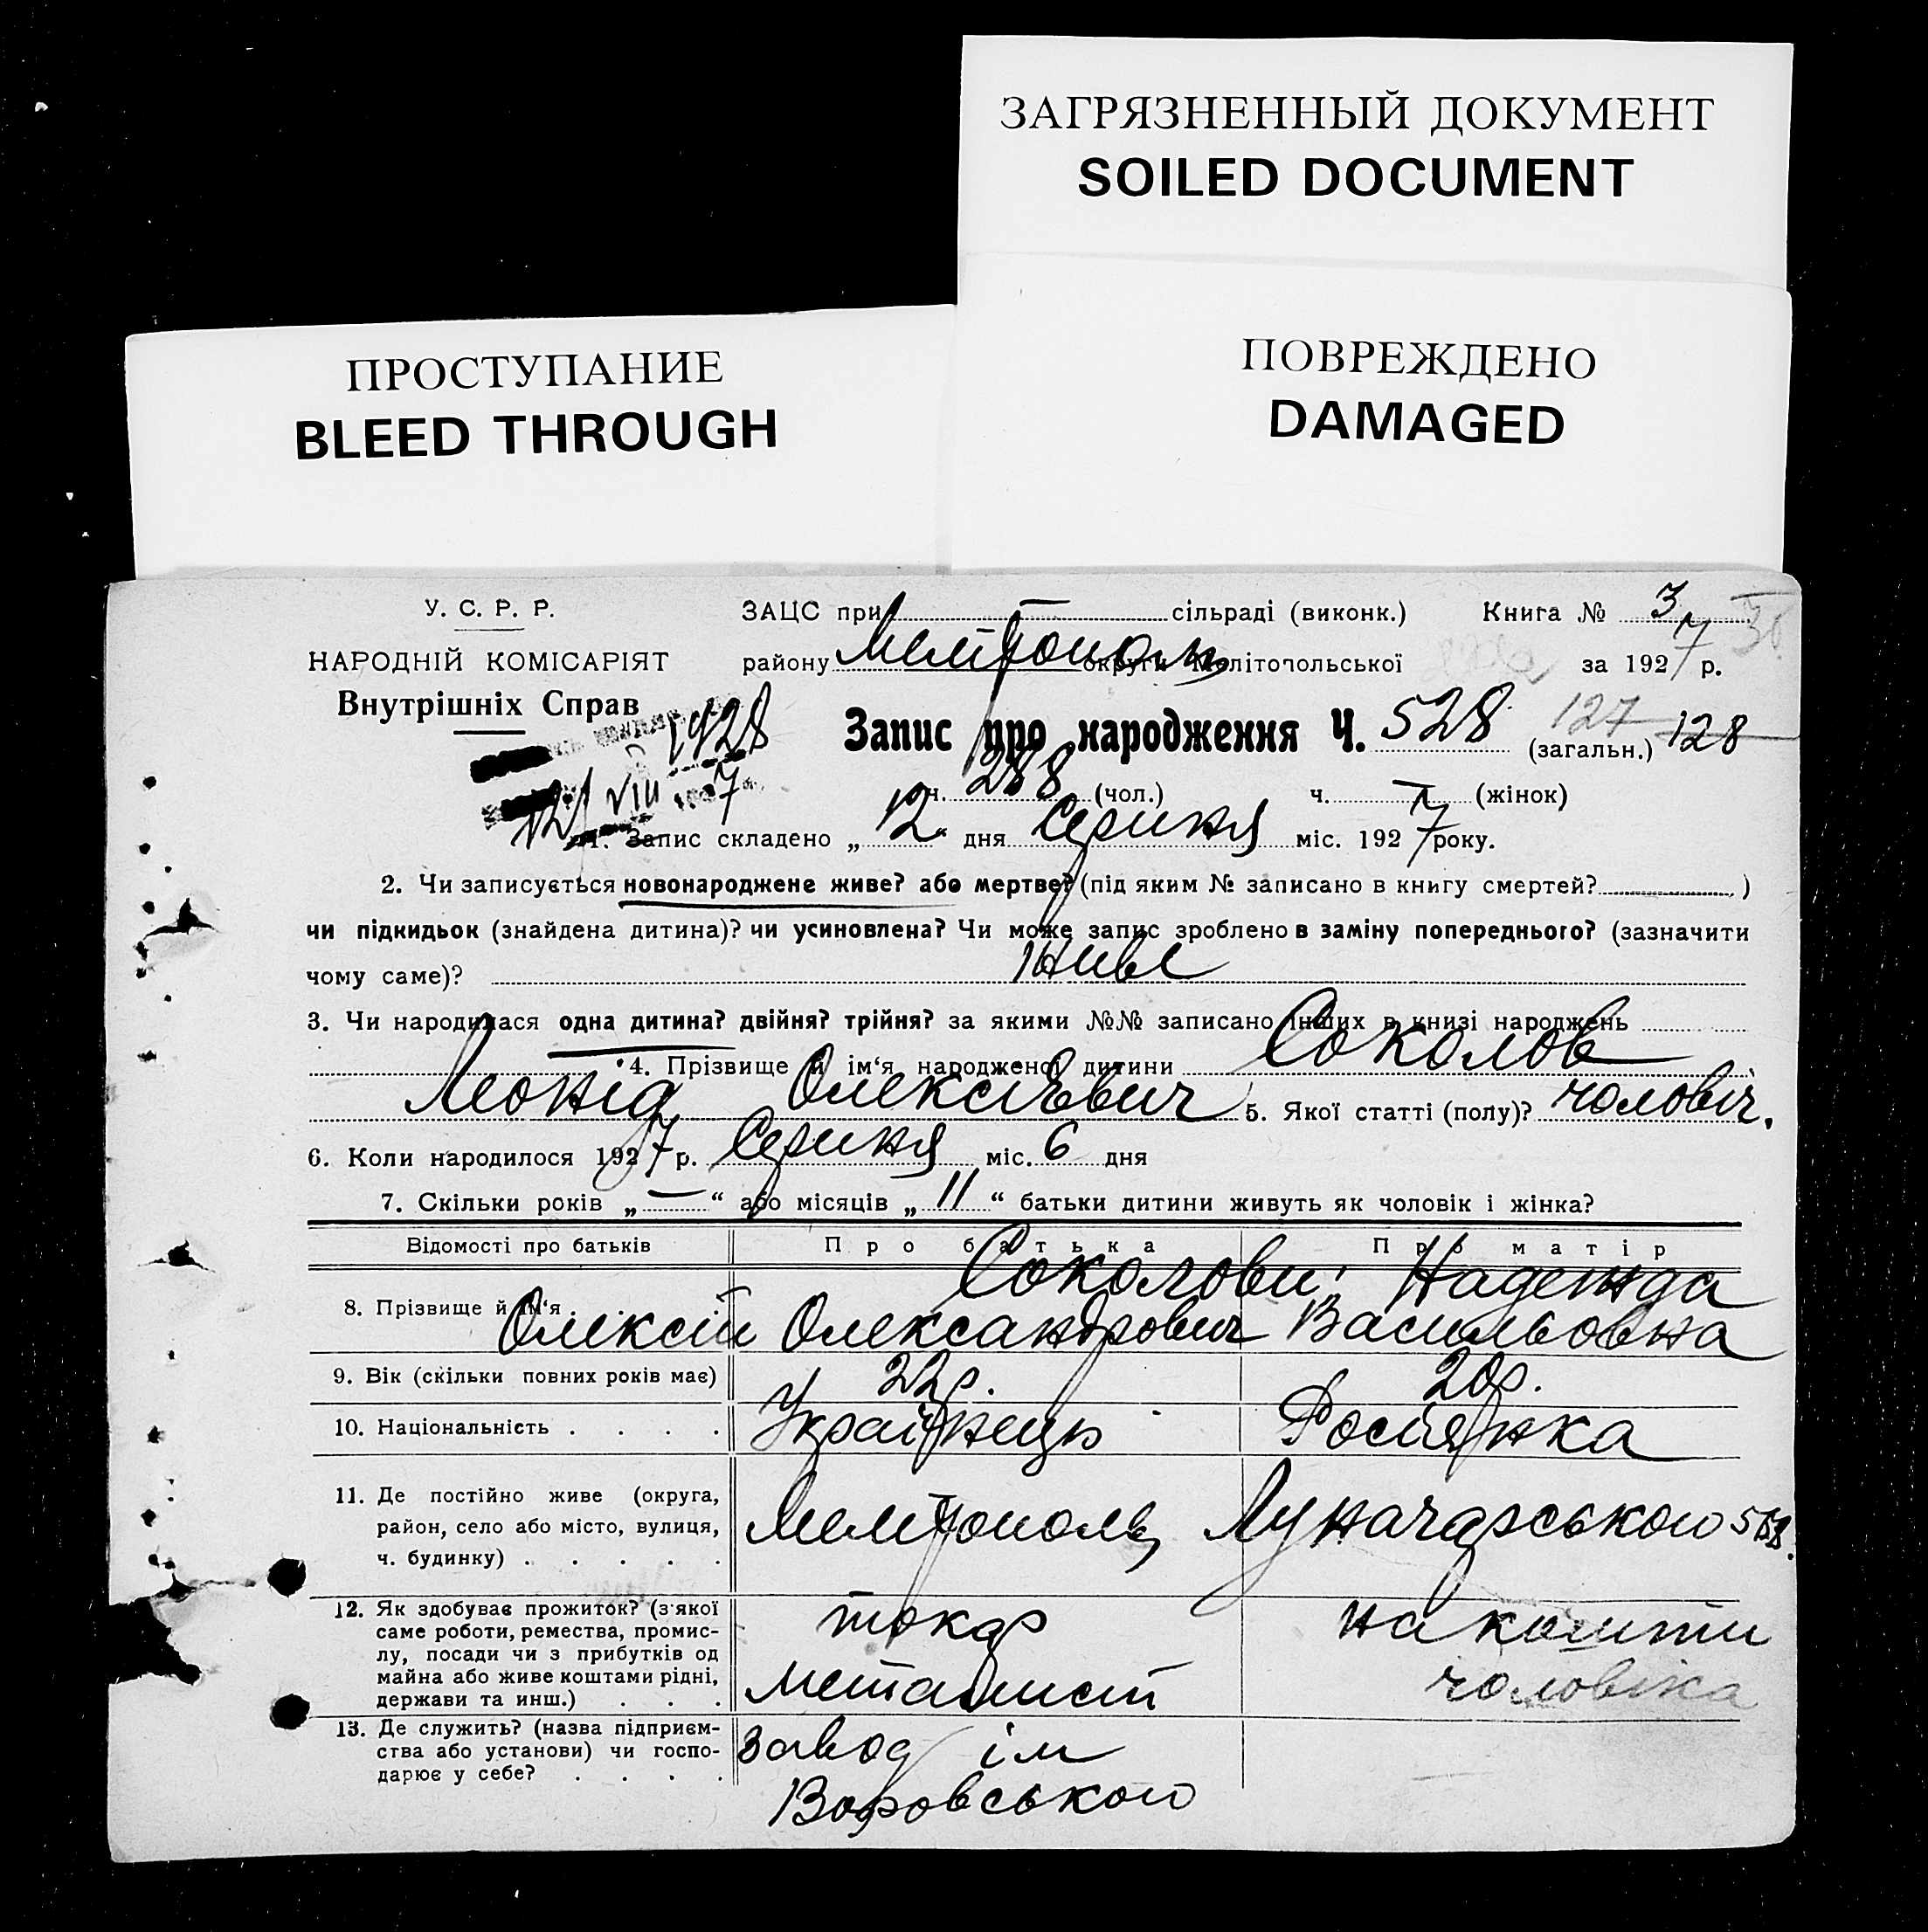 ЗАГРЯЗНЕННЫЙ ДОКУМЕНТ
SOILED DOCUMENT
ПРОСТУПАНИЕ
BLEED THROUGH
ПОВРЕЖДЕНО
DAMAGED
У. С. Р. Р.
НАРОДНІЙ КОМІСАРІЯТ
Внутрішніх Справ
ЗАЦС при — сільраді (виконк.) Книга № 3
району Мелітополь округи Мелітопольської за 1927 р.
1928
12/VIII 7
Запис про народження Ч. 528 (загальн.) 127 128
ч. 288 (чол.) ч. — (жінок)
1. Запис складено „ 12 " дня Серпня міс. 1927 року.
2. Чи записується новонароджене живе? або мертве? (під яким № записано в книгу смертей? )
чи підкидьок (знайдена дитина)? чи усиновлена? Чи може запис зроблено в заміну попереднього? (зазначити
чому саме)? живе
3. Чи народилася одна дитина? двійня? трійня? за якими №№ записано інших в книзі народжень
4. Прізвище й ім'я народженої дитини Соколов
Леонід Олексієвич 5. Якої статті (полу)? чоловіч.
6. Коли народилося 1927 р. Серпня міс. 6 дня
7. Скільки років „ — “ або місяців „ 11 “ батьки дитини живуть як чоловік і жінка?
Відомості про батьків Про батька Про матір
8. Прізвище й ім'я Соколови: Надежда
Олексій Олександрович Васильовна
9. Вік (скільки повних років має) 22 р. 20 р.
10. Національність . . . . Українець Росіянка
11. Де постійно живе (округа,
район, село або місто, вулиця,
ч. будинку) . . . . .
Мелітополь Луначарського
12. Як здобуває прожиток? (з якої
саме роботи, ремества, промис-
лу, посади чи з прибутків од
майна або живе коштами рідні,
держави та инш.) . . .
токар
металист
на кошти
чоловіка
13. Де служить? (назва підприєм-
ства або установи) чи госпо-
дарює у себе? . . . .
завод ім
Воровського